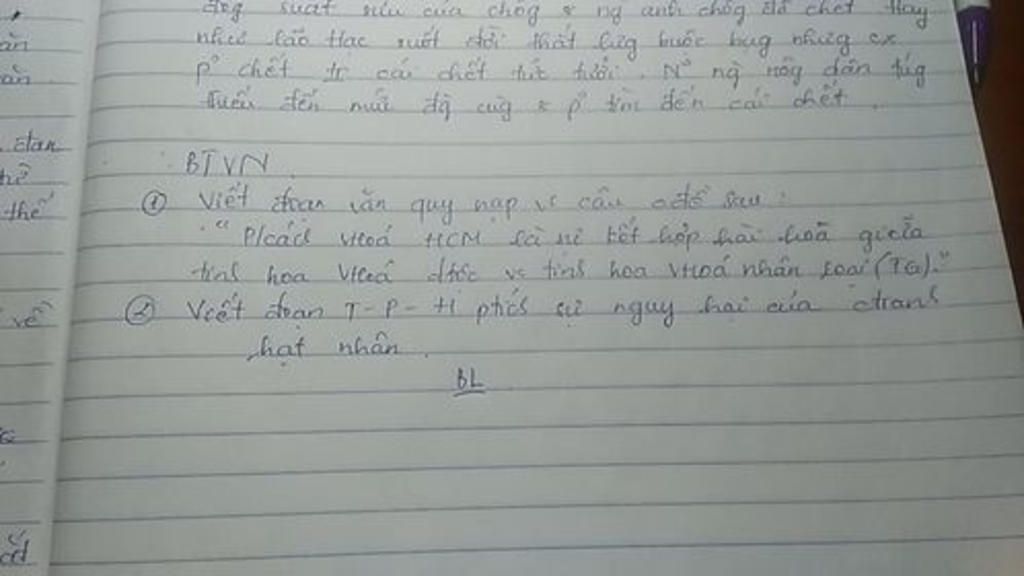 suất sưu của chồg & ng anh chồg đã chết Hay
như Lão Hạc suốt đời thắt lưg buộc bụg nhưg cx
pº chết tr cái chết tức tưởi. Nº ng nôg dân túg
thiếu đến mức độ cùg & pº tìm đến cái chết.
đàn
thể
thế
về
BTVN.
① Viết đoạn văn quy nạp vs câu cđề sau:
"P/cách vhoá HCM là sự kết hợp hài hoà giữa
tinh hoa vhoá dtộc vs tinh hoa vhoá nhân loại (TG)."
② Viết đoạn T-P-H ptích sự nguy hại của ctranh
hạt nhân.
BL